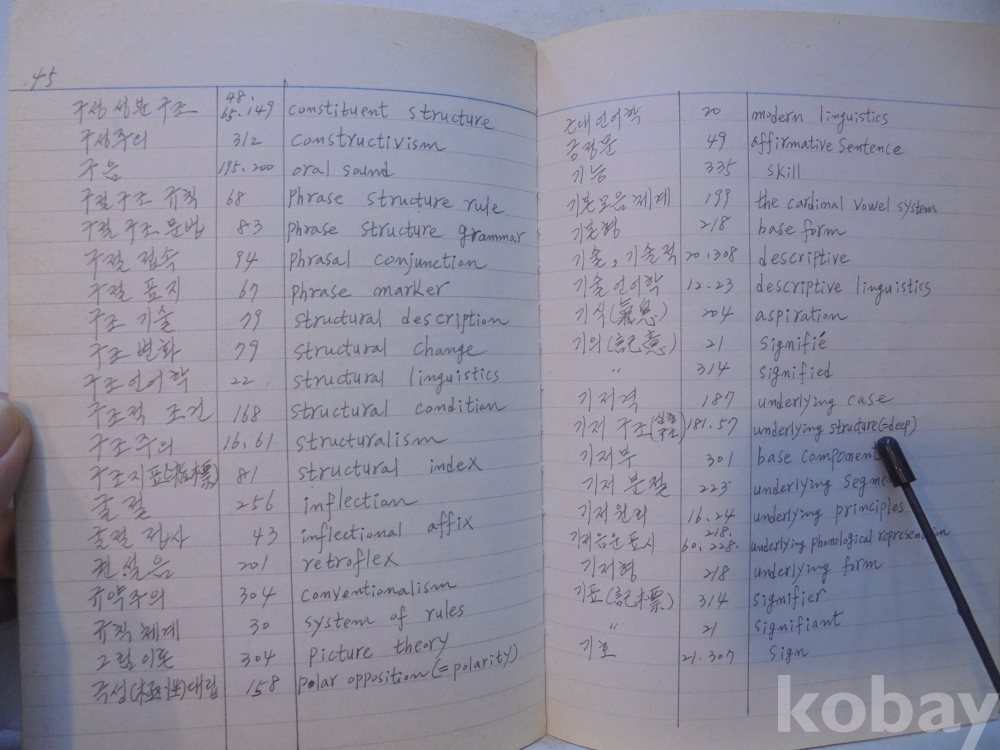 .45
구성 성분 구조 48. 65.149 constituent structure
구성주의 312 constructivism
구음 195.200 oral sound
구절구조 규칙 68 Phrase structure rule
구절 구조 문법 83 phrase structure grammar
구절 접속 94 phrasal conjunction
구절 표지 67 phrase marker
구조 기술 79 structural description
구조 변화 79 structural change
구조언어학 22 structural linguistics
구조적 조건 168 structural condition
구조주의 16.61 structuralism
구조지표(指標) 81 structural index
굴절 256 inflection
굴절 접사 43 inflectional affix
권설음 201 retroflex
규약주의 304 conventionalism
규칙 체계 30 system of rules
그림이론 304 picture theory
극성(極性)대립 158 polar opposition(=polarity)
근대언어학 20 modern linguistics
긍정문 49 affirmative sentence
기능 335 skill
기본모음체계 199 the cardinal vowel system
기본형 218 base form
기술, 기술적 20.308 descriptive
기술 언어학 12.23 descriptive linguistics
기식(氣息) 204 aspiration
기의(記意) 21 signifié
〃 314 signified
기저격 187 underlying case
기저 구조(심층구조) 181.57 underlying structure(=deep)
기저부 301 base component
기저 분절 223 underlying
기저원리 16.24 underlying principles
기저음운표시 218. 60.228. underlying phonological representation
기저형 218 underlying form
기표(記標) 314 signifier
〃 21 signifiant
기호 21.307 sign
kobay